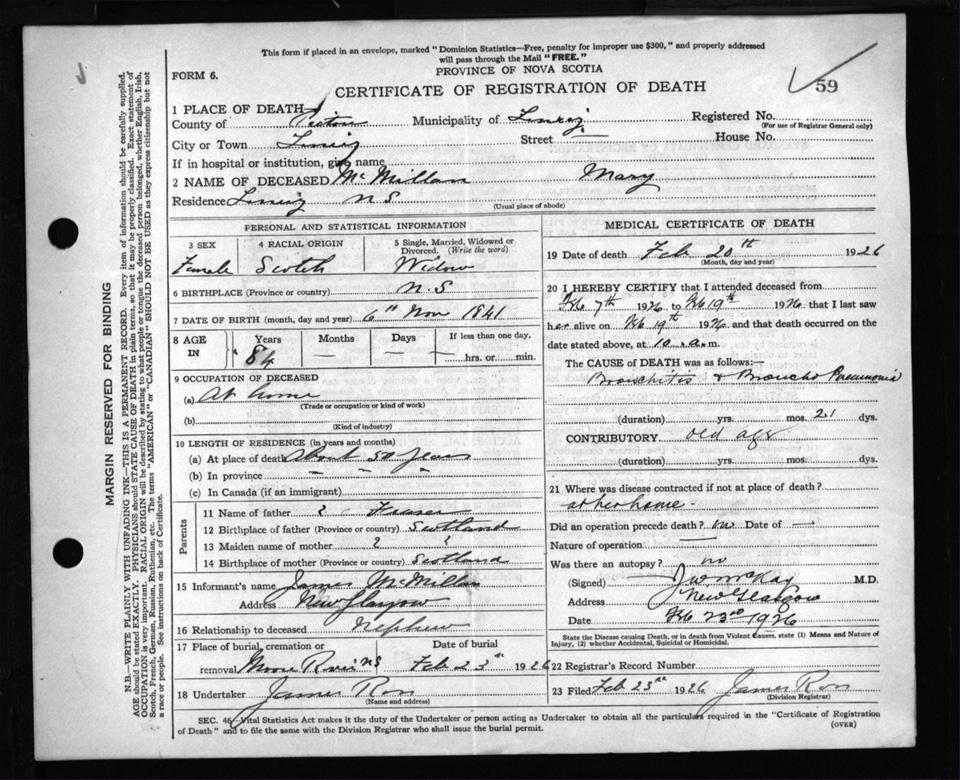 This form if placed in an envelope, marked "Dominion Statistics—Free, penalty for improper use $300," and properly addressed
will pass through the Mail "FREE."
FORM 6.
PROVINCE OF NOVA SCOTIA
59
CERTIFICATE OF REGISTRATION OF DEATH
1 PLACE OF DEATH
County of Pictou Municipality of Registered No.
(For use of Registrar General only)
City or Town Street — House No.
If in hospital or institution, give name
2 NAME OF DECEASED McMillan Mary
Residence N.S
(Usual place of abode)
PERSONAL AND STATISTICAL INFORMATION
3 SEX 4 RACIAL ORIGIN 5 Single, Married, Widowed or Divorced. (Write the word)
Female Scotch Widow
6 BIRTHPLACE (Province or country) N.S
7 DATE OF BIRTH (month, day and year) 6th Nov 1841
8 AGE IN Years Months Days If less than one day,
84 — — hrs. or min.
9 OCCUPATION OF DECEASED
(a) At home
(Trade or occupation or kind of work)
(b)
(Kind of industry)
10 LENGTH OF RESIDENCE (in years and months)
(a) At place of death About 50 years
(b) In province — — —
(c) In Canada (if an immigrant)
Parents
11 Name of father ? Fraser
12 Birthplace of father (Province or country) Scotland
13 Maiden name of mother ? ?
14 Birthplace of mother (Province or country) Scotland
15 Informant's name James McMillan
Address New Glasgow
16 Relationship to deceased Nephew
17 Place of burial, cremation or removal Date of burial
N S Feb 23rd 1926
18 Undertaker James Ross
(Name and address)
MEDICAL CERTIFICATE OF DEATH
19 Date of death Feb 20th 1926
(Month, day and year)
20 I HEREBY CERTIFY that I attended deceased from
Feb 7th 1926 to Feb 19th 1926 that I last saw
her alive on Feb 19th 1926 and that death occurred on
date stated above, at 10 a.m.
The CAUSE OF DEATH was as follows:—
Bronchitis & Broncho Pneumonia
(duration) yrs. mos. 21 dys.
CONTRIBUTORY old age
(duration) yrs. mos. dys.
21 Where was disease contracted if not at place of death?
at her home
Did an operation precede death? no Date of —
Nature of operation —
Was there an autopsy? no
(Signed) J W McKay M.D.
Address New Glasgow
Date Feb 23rd 1926
State the Disease causing Death, or in death from Violent Causes, state (1) Means and Nature of
Injury, (2) whether Accidental, Suicidal or Homicidal.
22 Registrar's Record Number
23 Filed Feb 23rd 1926 James Ross
(Division Registrar)
SEC. 46 Vital Statistics Act makes it the duty of the Undertaker or person acting as Undertaker to obtain all the particulars required in the "Certificate of Registration
of Death" and to file the same with the Division Registrar who shall issue the burial permit.
(OVER)
MARGIN RESERVED FOR BINDING
N.B.—WRITE PLAINLY WITH UNFADING INK—THIS IS A PERMANENT RECORD. Every item of information should be carefully supplied.
AGE should be stated EXACTLY. PHYSICIANS should STATE CAUSE OF DEATH in plain terms, so that it may be properly classified. Exact statement of
OCCUPATION is very important. RACIAL ORIGIN will be described by stating to what people or tongue the deceased person belonged, whether English, Irish,
Scotch, French, German, Russian, Ruthenian, etc. The terms "AMERICAN" or "CANADIAN" SHOULD NOT BE USED as they express citizenship but not
a race or people. See instructions on back of Certificate.